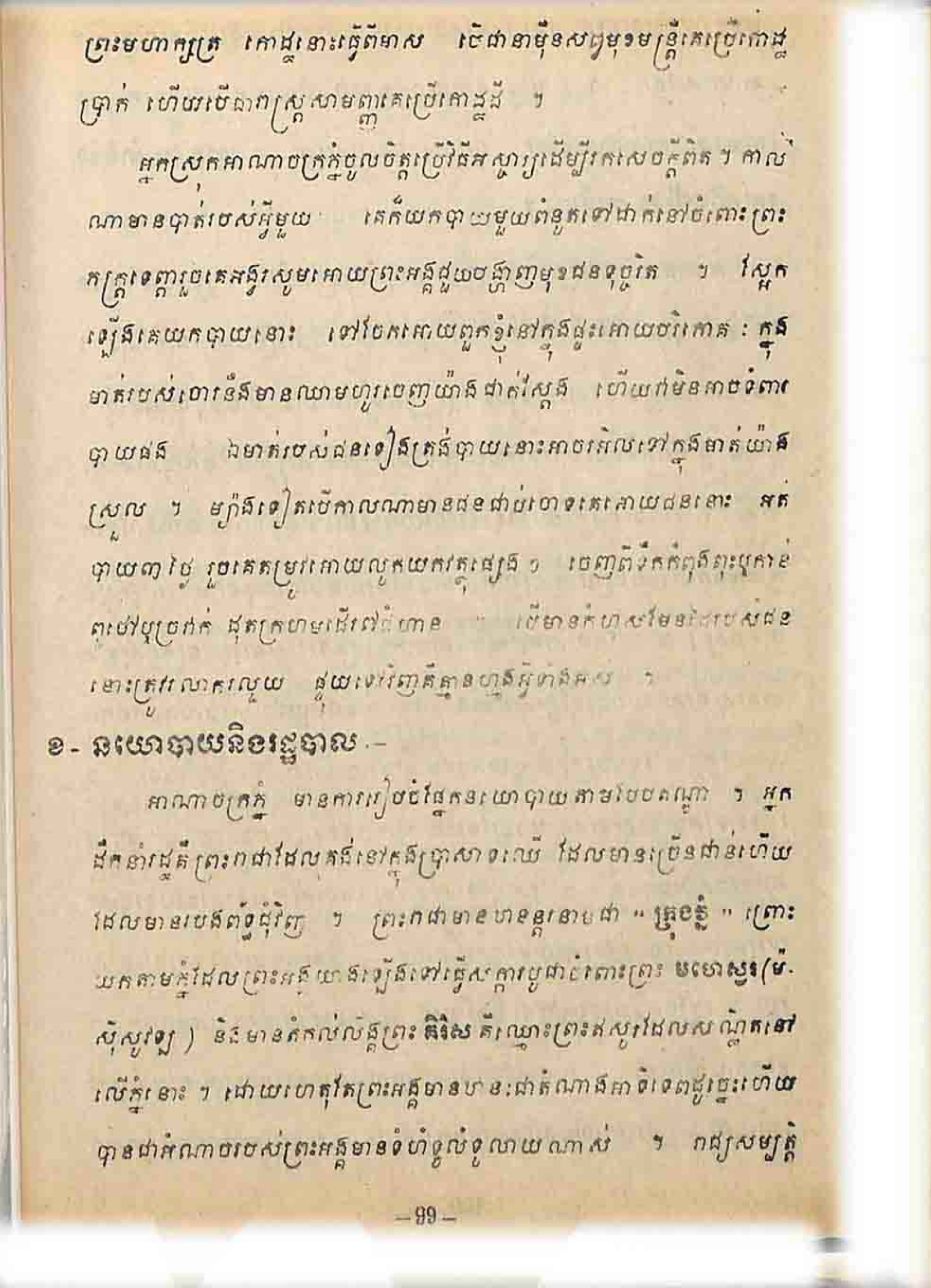 ព្រះមហាក្សត្រ កោដ្ឋនោះធ្វើពីមាស បើជានាម៉ឺនសព្វមុខមន្ត្រីគេប្រើកោដ្ឋ
ប្រាក់ ហើយបើជារាស្ត្រសាមញ្ញគេប្រើកោដ្ឋដី ។
អ្នកស្រុកអាណាចក្រភ្នំចូលចិត្តប្រើវិធីអស្ចារ្យដើម្បីរកសេចក្តីពិត ។ កាល
ណាមានបាត់របស់អ្វីមួយ គេក៏យកបាយមួយពំនូតទៅដាក់នៅចំពោះព្រះ
ភក្ត្រទេព្តារួចគេអង្វរសូមអោយព្រះអង្គជួយបង្ហាញមុខជនទុច្ចរិត ។ ស្អែក
ឡើងគេយកបាយនោះ ទៅចែកអោយពួកខ្ញុំនៅក្នុងផ្ទះអោយបរិភោគ : ក្នុង
មាត់របស់ចោរនឹងមានឈាមហូរចេញយ៉ាងជាក់ស្តែង ហើយវាមិនអាចទំពារ
បាយផង ឯមាត់របស់ជនទៀងត្រង់បាយនោះអាចរអិលទៅក្នុងមាត់យ៉ាង
ស្រួល ។ ម្យ៉ាងទៀតបើកាលណាមានជនជាប់ចោទគេអោយជននោះ អត់
បាយ៣ថ្ងៃ រួចគេតម្រូវអោយលូកយកវត្ថុផ្សេង ៗ ចេញពីទឹកកំពុងពុះឬកាន់
ពូថៅឬច្រវាក់ ដុតក្រហមដើរ៧ជំហាន ។ បើមានកំហុសមែនដៃរបស់ជន
នោះត្រូវរលាករលួយ ផ្ទុយទៅវិញគឺគ្មានហ្មងអ្វីទាំងអស់ ។
ខ- នយោបាយនិងរដ្ឋបាល –
អាណាចក្រភ្នំ មានការរៀបចំផ្នែកនយោបាយតាមបែបឥណ្ឌា ។ អ្នក
ដឹកនាំរដ្ឋគឺព្រះរាជាដែលគង់នៅក្នុងប្រាសាទឈើ ដែលមានច្រើនជាន់ហើយ
ដែលមានរបងព័ទ្ធជុំវិញ ។ ព្រះរាជាមានឋានន្តរនាមជា “ ក្រុងភ្នំ ” ព្រោះ
យកតាមភ្នំដែលព្រះអង្គយាងឡើងទៅធ្វើសក្ការបូជាចំពោះព្រះ មហេស្វរ(ម៉-
ស៊ីសូវឡូ ) និងមានតំកល់លិង្គព្រះ គិរិស គឺឈ្មោះព្រះឥសូរដែលសណ្ឋិតនៅ
លើភ្នំនោះ ។ ដោយហេតុតែព្រះអង្គមានឋានៈជាតំណាងអាទិទេពដូច្នេះហើយ
បានជាអំណាចរបស់ព្រះអង្គមានទំហំទូលំទូលាយណាស់ ។ រាជ្យសម្បត្តិ
–99–